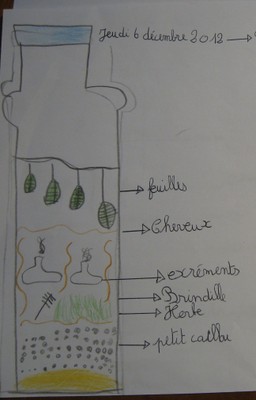 Jeudi 6 décembre 2012
feuilles
Cheveux
excréments
Brindille
Herbe
petit caillou